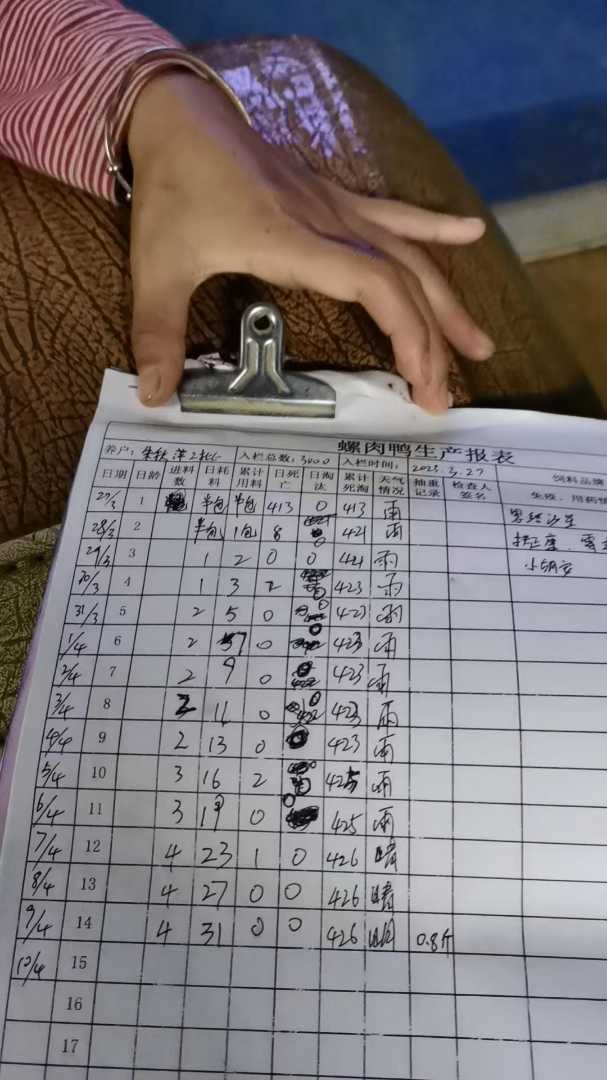 螺肉鸭生产报表
养户: 入栏总数: 3400 入栏时间: 2023.3.27
日期 日龄 进料数 日耗料 累计用料 日死亡 日淘汰 累计死淘 天气情况 抽重记录 检查人签名 饲料品牌
免疫、用药情
27/3 1 半包 半包 413 0 413 雨
28/3 2 半包 1包 8 0 421 雨
29/3 3 1 2 0 0 421 雨
30/3 4 1 3 2 0 423 雨
31/3 5 2 5 0 0 423 雨
1/4 6 2 7 0 0 423 雨
2/4 7 2 9 0 0 423 雨
3/4 8 2 11 0 0 423 雨
4/4 9 2 13 0 423 雨
5/4 10 3 16 2 0 425 雨
6/4 11 3 19 0 0 425 雨
7/4 12 4 23 1 0 426 晴
8/4 13 4 27 0 0 426 晴
9/4 14 4 31 0 0 426 0.8斤
10/4 15
16
17